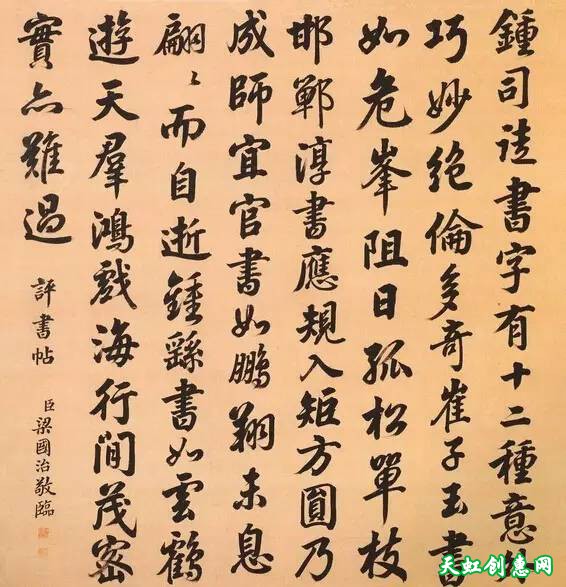 鍾司徒書字有十二種意外
巧妙絕倫多奇崔子玉書
如危峯阻日孤松單枝
邯鄲淳書應規入矩方圓乃
成師宜官書如鵬翔未息
翩〻而自逝鍾繇書如雲鶴
遊天羣鴻戲海行間茂密
實亦難過
評書帖
臣梁國治敬臨
天虹创意网